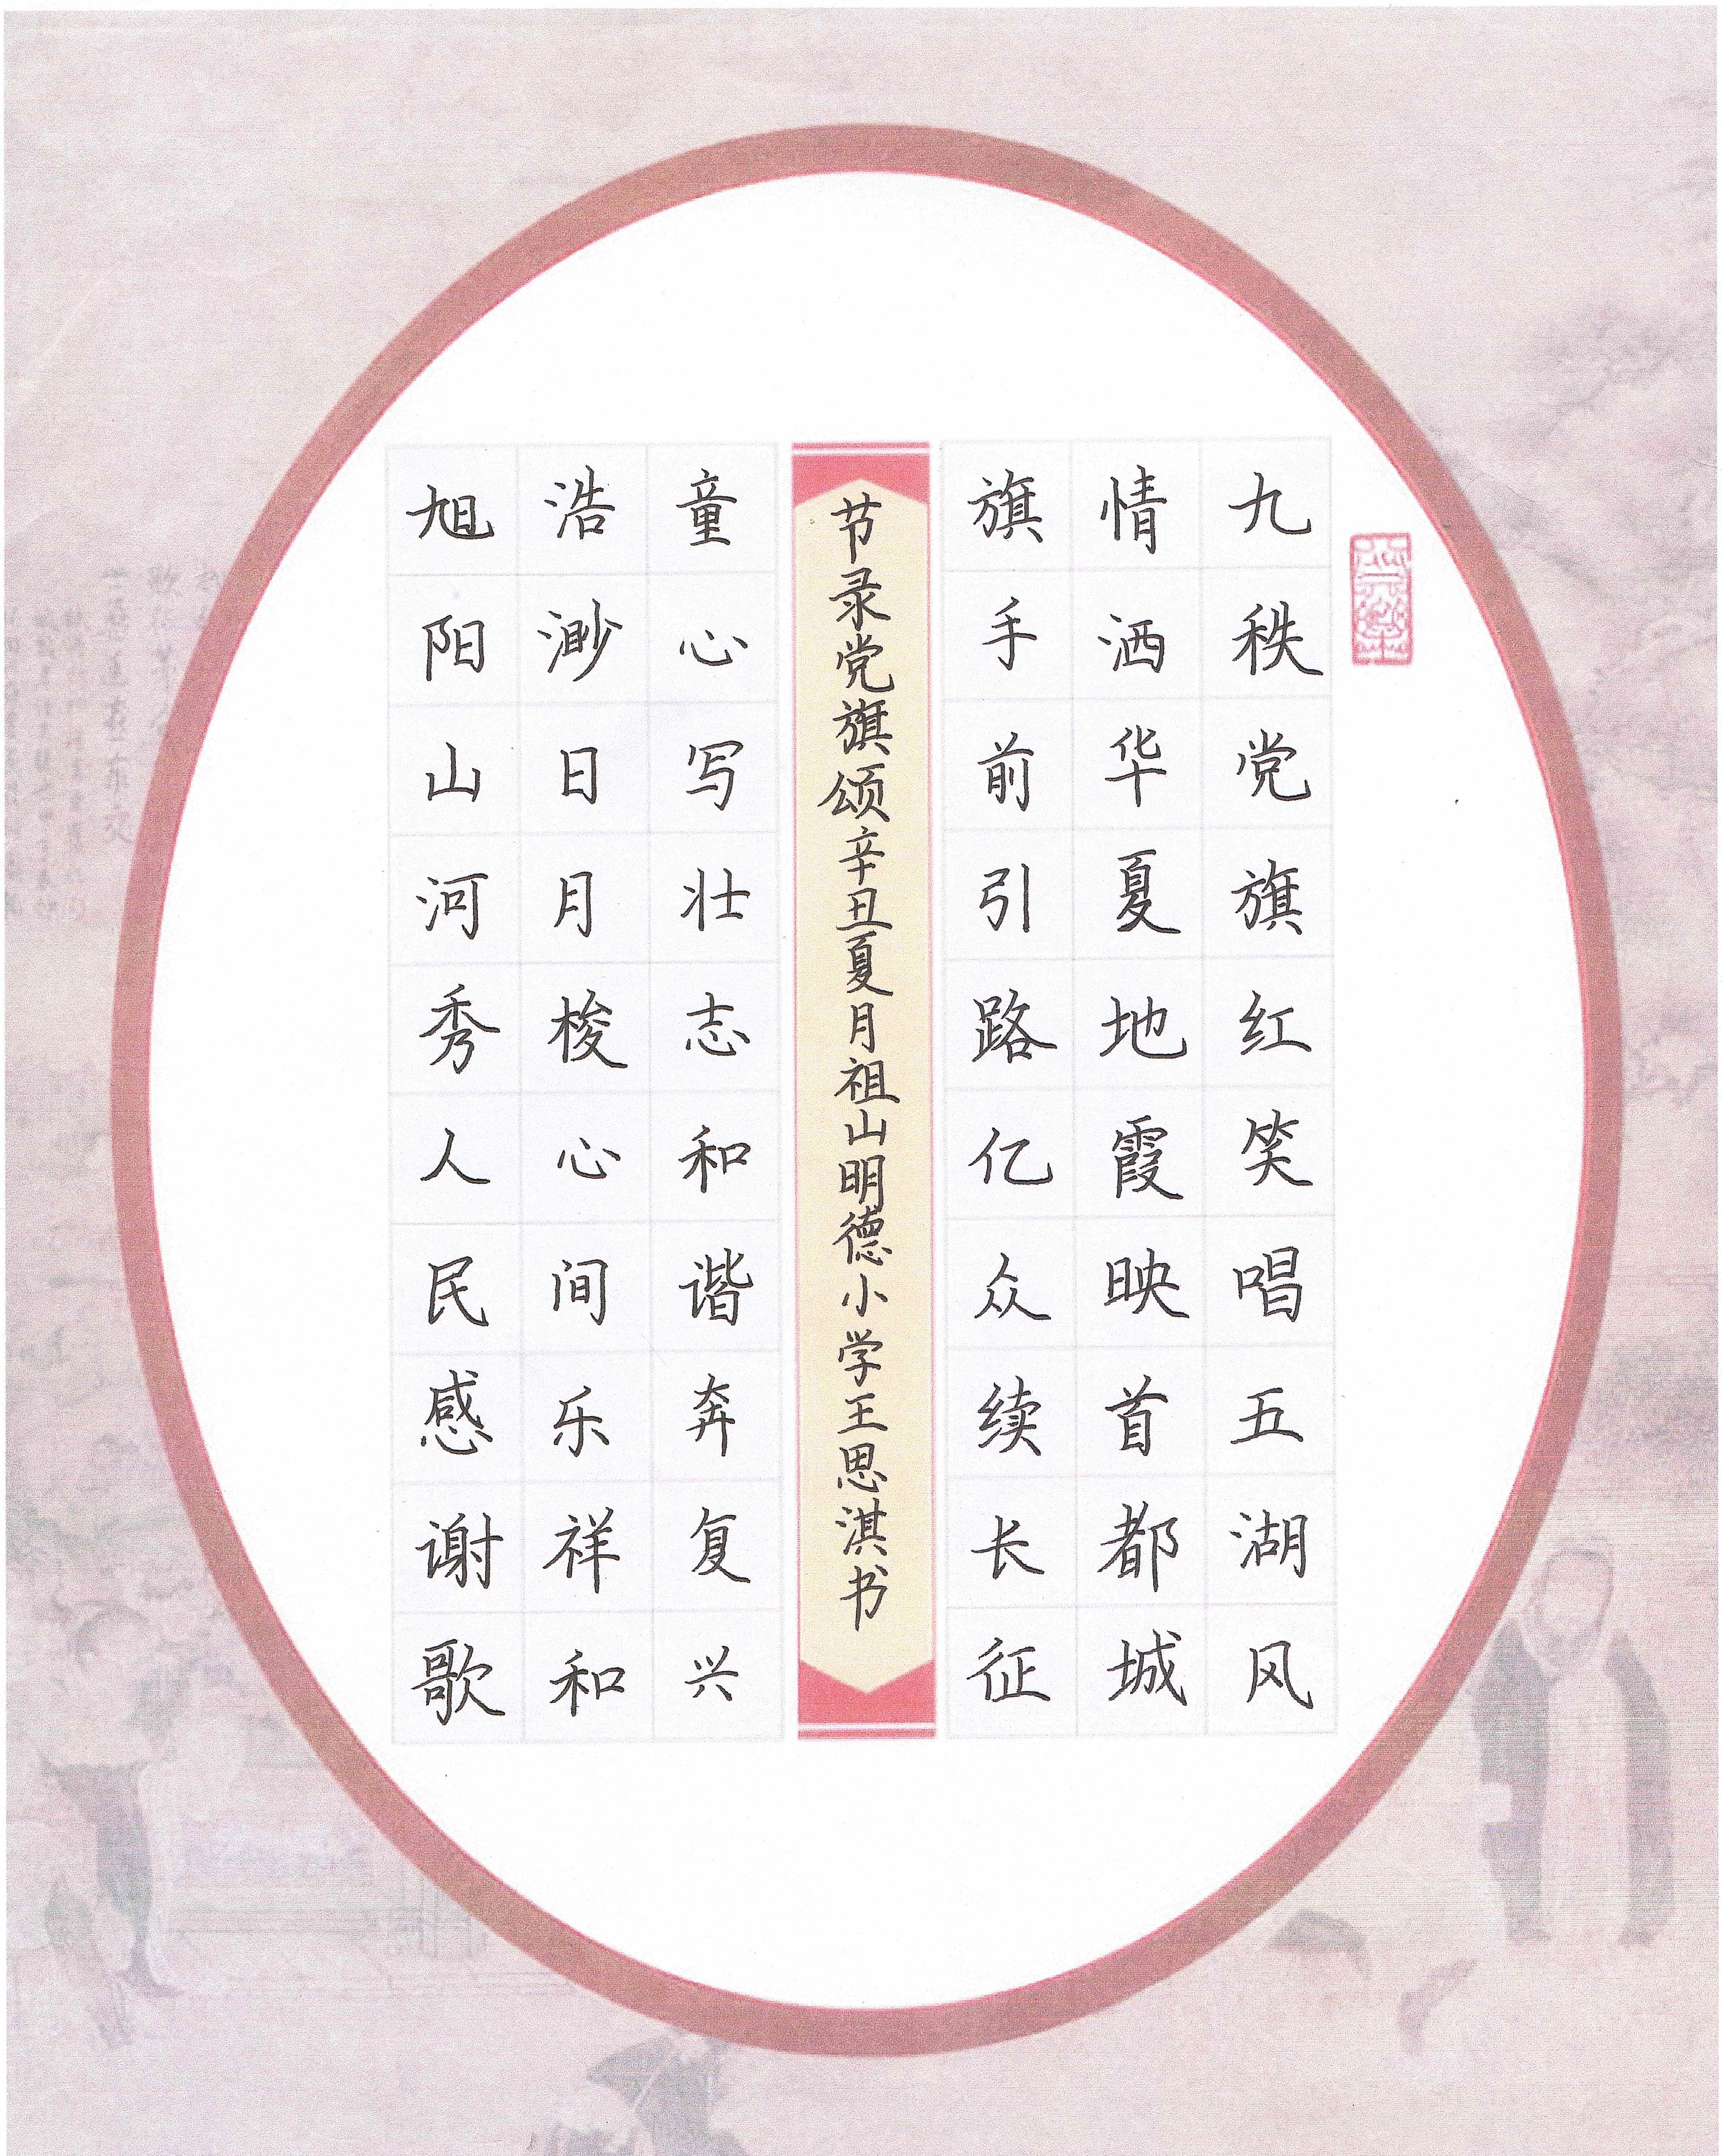 九秩党旗红笑唱五湖风
情洒华夏地霞映首都城
旗手前引路亿众续长征
节录党旗颂辛丑夏月祖山明德小学王思淇书
童心写壮志和谐奔复兴
浩渺日月梭心间乐祥和
旭阳山河秀人民感谢歌